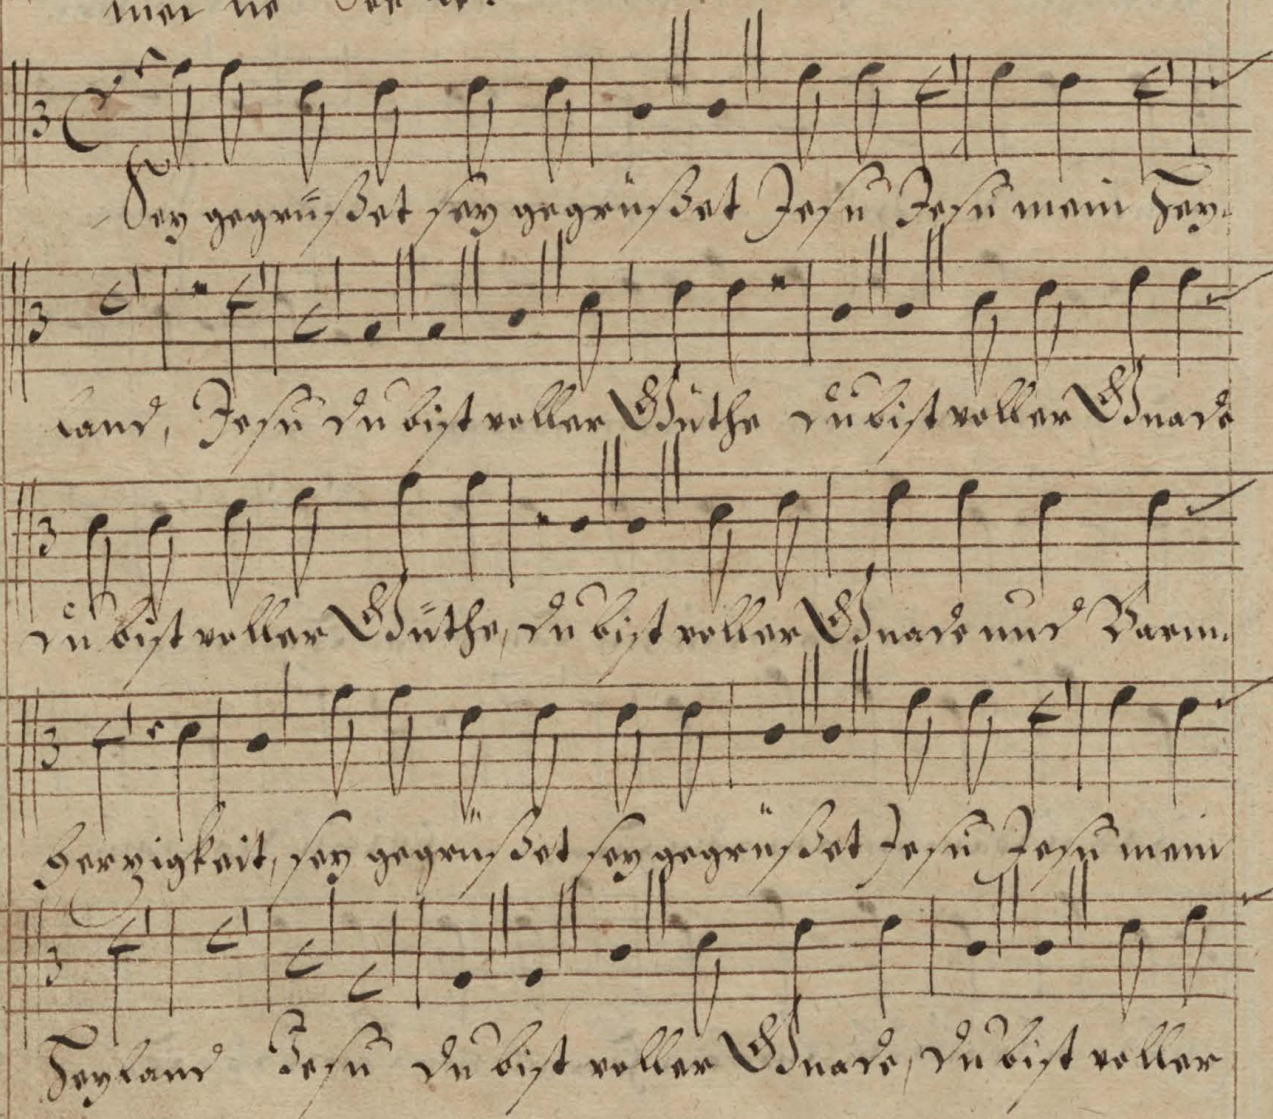 meine Seele.
Sey gegrüßet sey gegrüßet Jesu Jesu mein Hey-
land, Jesu du bist voller Güthe du bist voller Gnade
du bist voller Güthe, du bist voller Gnade und Barm-
hertzigkeit, sey gegrüßet sey gegrüßet Jesu Jesu mein
Heyland Jesu du bist voller Gnade, du bist voller